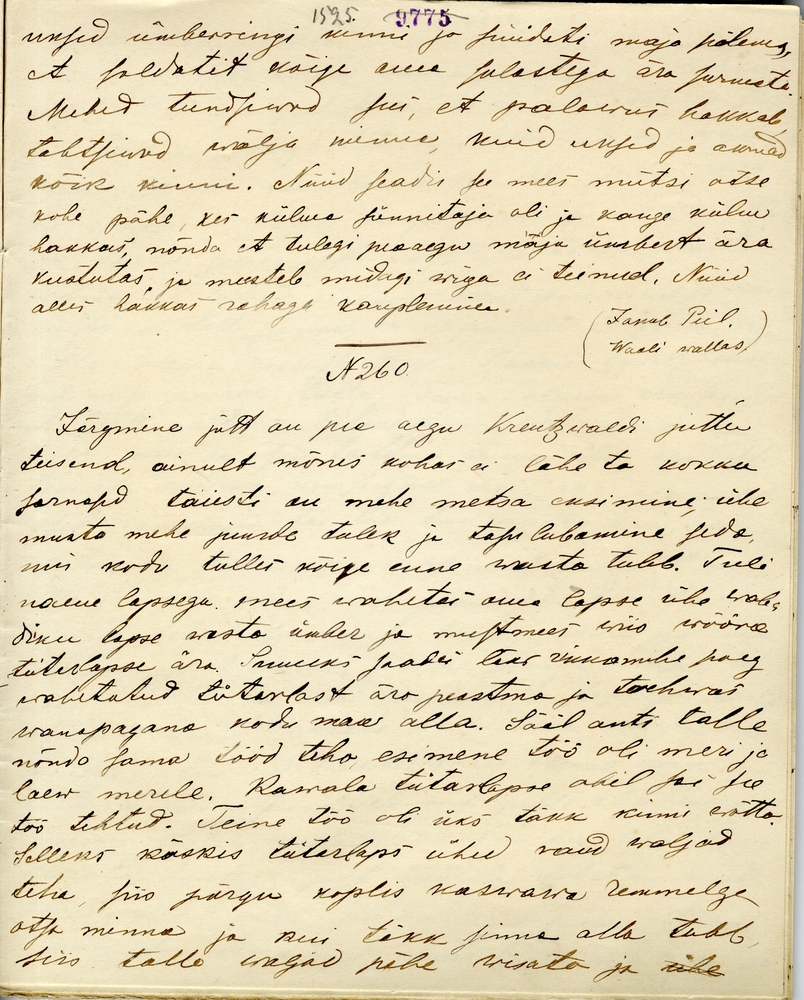 1525. 9775
uksed ümberringi kinni ja süüdati maja põlema,
et soldatit kõige oma sulastega ära surmata.
Mehed tundsiwad siis, et palawus hakkab,
tahtsiwad wälja minna, kuid uksed ja aknad
kõik kinni. Nüüd seadis see mees mütsi otse
kohe pähe, kes külma sünnitaja oli ja kange külm
hakkas, nõnda et tulegi peaaegu maja ümbert ära
kustutas, ja meestele midagi wiga ei teinud. Nüüd
alles hakkas rahaga kauplemine.
(Jakob Piil.
Waali wallas)
N 260.
Järgmine jutt on pea aegu Kreutzwaldi juttu
teisend, ainult mõnes kohas ei lähe ta kokku
sarnased täiesti on mehe metsa eksimine; ühe
musta mehe juurde tulek ja tasu lubamine seda,
mis kodu tulles kõige enne wasta tuleb. Tuli
naene lapsega. mees wahetas oma lapse ühe waba-
diku lapse wasta ümber ja mustmees wiis wõõra
tütarlapse ära. Suureks saades läks rikkamehe poeg
wahetatud tütarlast ära peastma ja tochwas
wanapagana kodu maa alla. Sääl anti talle
nõnda sama tööd teha, esimene töö oli meri ja
laew merele. Kawala tütarlapse abil sai see
töö tehtud. Teine töö oli üks täkk kinni wõtta.
Selleks käskis tütarlaps ühed raud waljad
teha, siis põrgu koplis kaswawa remmelga
otsa minna ja kui täkk sinna alla tuleb,
siis talle waljad pähe wisata ja ühe